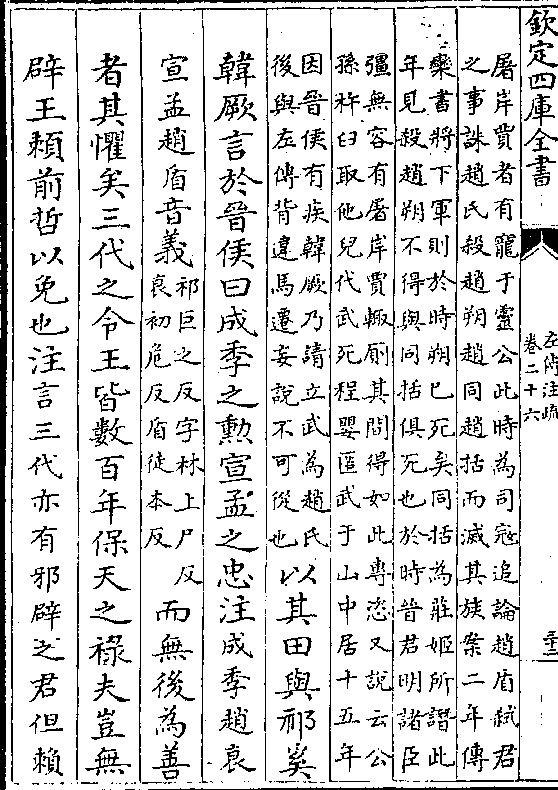 欽定四庫全書
左傳注疏
卷二十六
屠岸賈者有寵于靈公此時為司寇追論趙盾弒君
之事誅趙氏殺趙朔趙同趙括而滅其族案二年傳
欒書將下軍則於時朔已死矣同括為莊姬所譖此
年見殺趙朔不得與同括俱死也於時晉君明諸臣
彊無容有屠岸賈輒厠其間得如此專恣又説云公
孫杵臼取他兒代武死程嬰匿武于山中居十五年
因晉侯有疾韓厥乃請立武為趙氏
後與左傳背違馬遷妄説不可從也
以其田與祁奚
韓厥言於晉侯曰成季之勲宣孟之忠注成季趙衰
宣孟趙盾音義
祁巨之反字林上尸反
衰初危反盾徒本反
而無後為善
者其懼矣三代之令王皆數百年保天之祿夫豈無
辟王賴前哲以免也注言三代亦有邪辟之君但賴